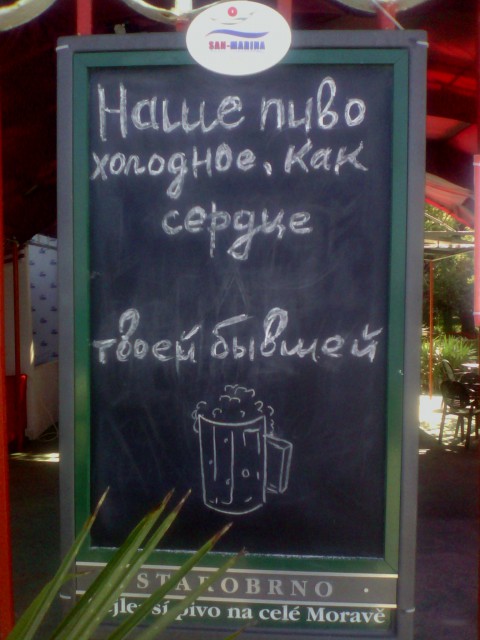 SAN-MARINA
Наше пиво
холодное, как
сердце
твоей бывшей
STAROBRNO
pivo na celé Moravě